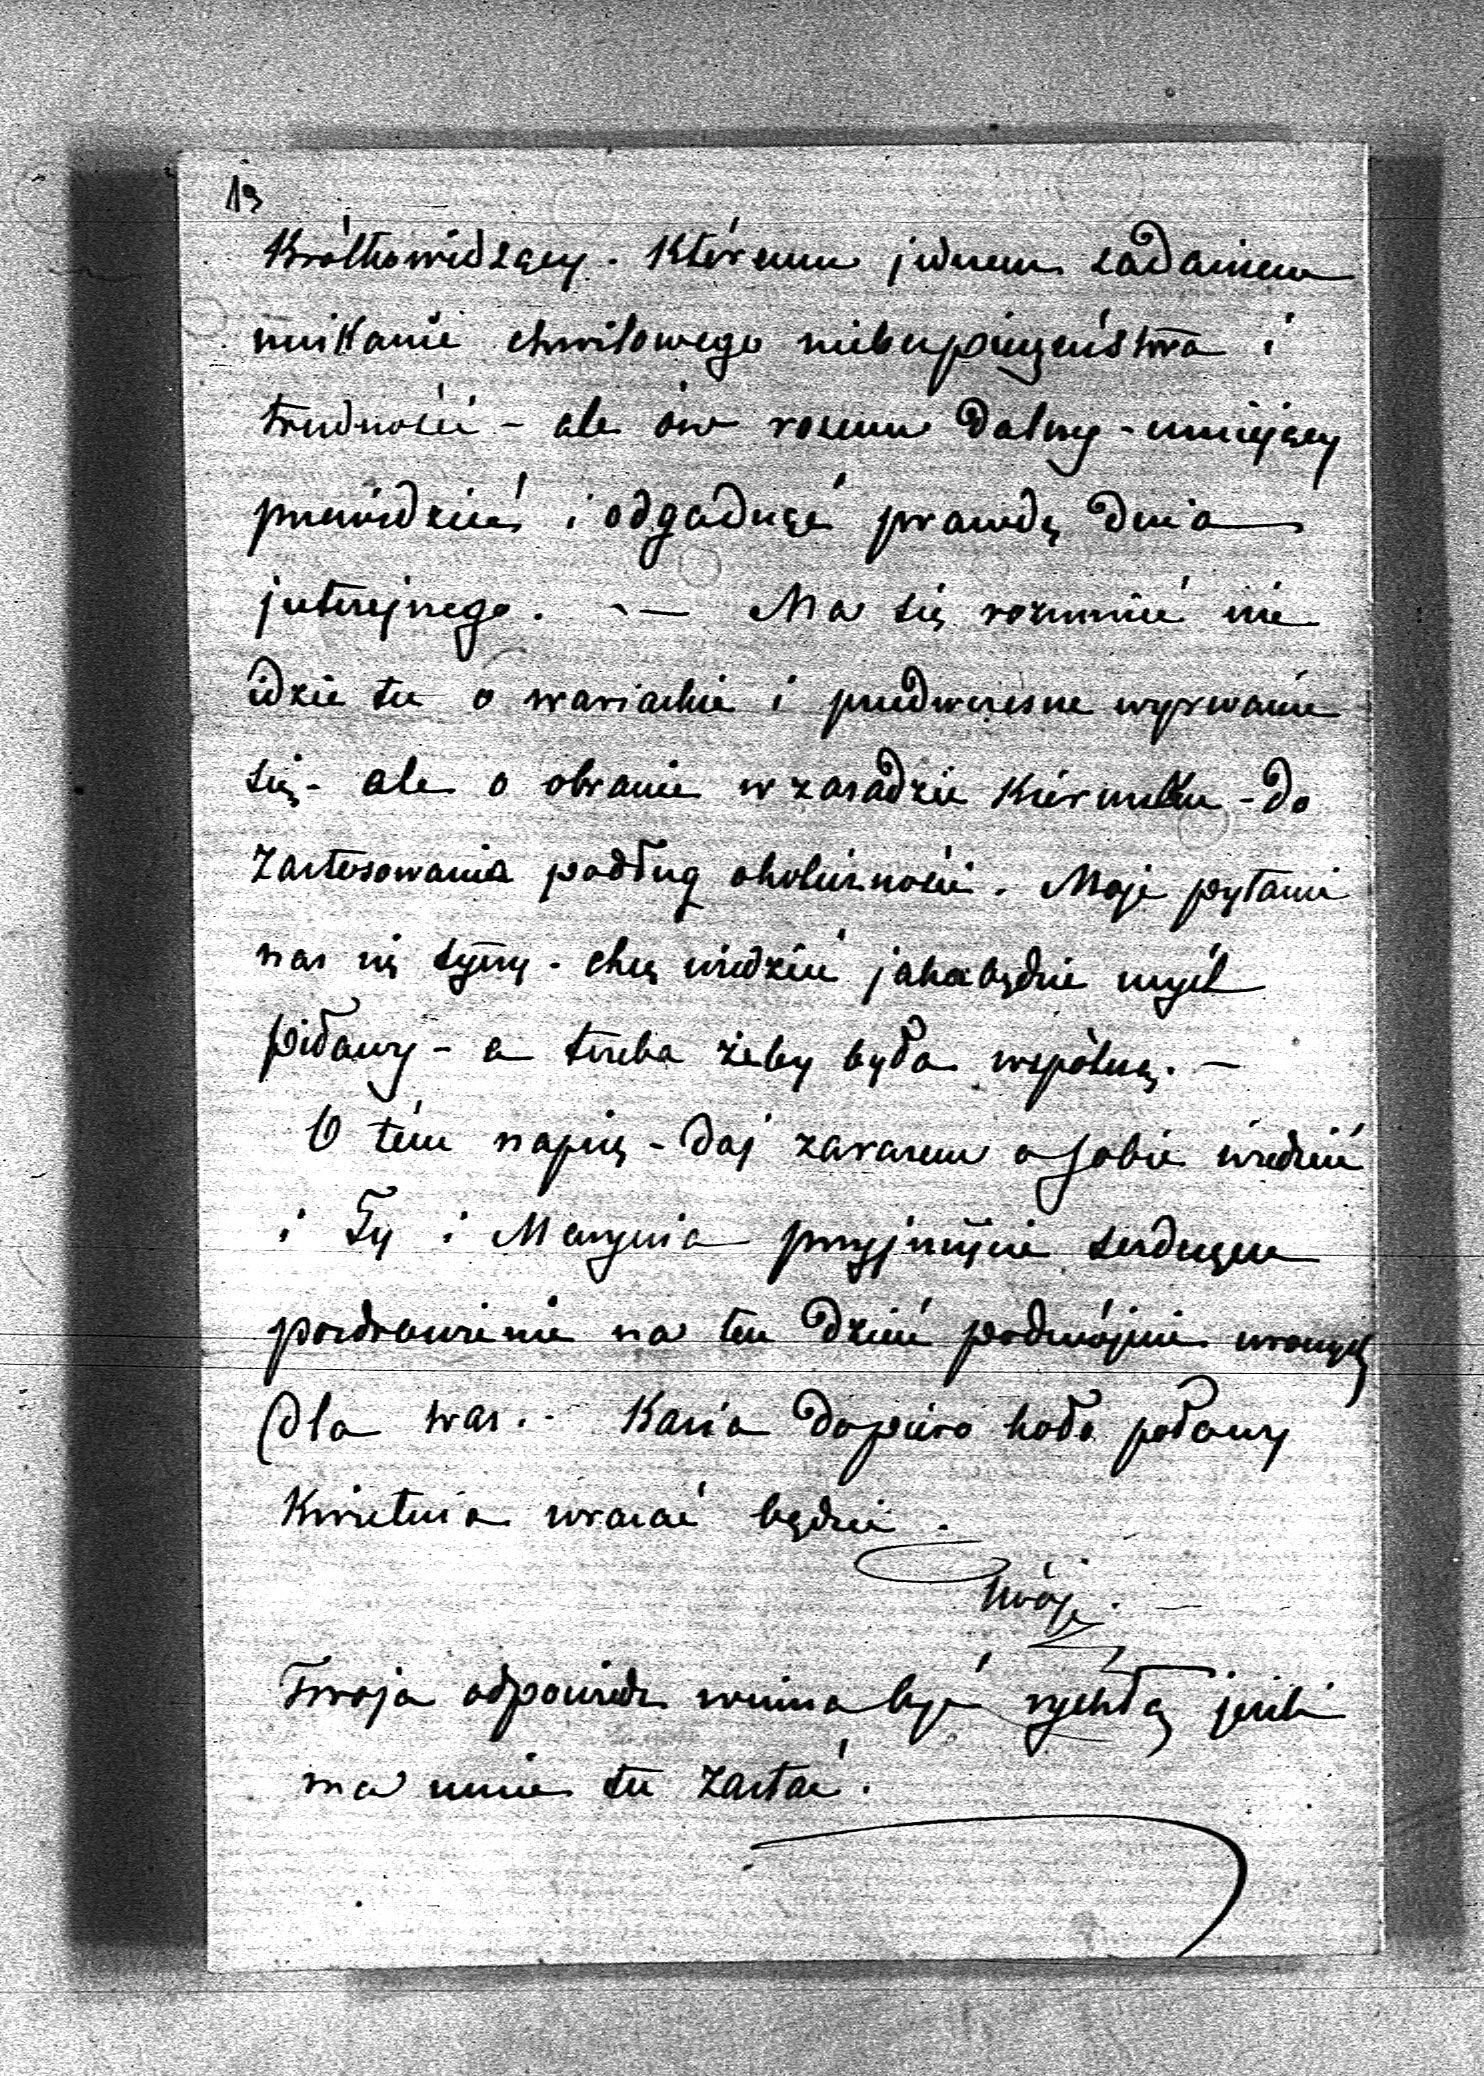 13
Krótkowidzący. Któremu jednem zadaniem
unikanie chwilowego niebezpieczeństwa i
trudności - ale ów rozum dalszy - umiejący
przewidzieć i odgadnąć prawdę dnia
jutrzejszego. — Ma się rozumieć nie
idzie tu o wariackie i przedwczesne wyrwanie
się - ale o obranie w zasadzie kierunku - do
zastosowania podług okoliczności. Moje pytanie
nas się tyczy - chcę wiedzieć jaka będzie myśl
Pilawy - a trzeba żeby była wspólną. —
O tém napisz - daj zarazem o sobie wiedzieć
i Ty i Marynia przyjmijcie serdeczne
pozdrowienie na ten dzień podwójnie uroczysty
dla was. - Kasia dopiero koło połowy
Kwietnia wracać będzie.
Twój. —
Twoja odpowiedź winna być rychłą jeżeli
ma mnie tu zastać.